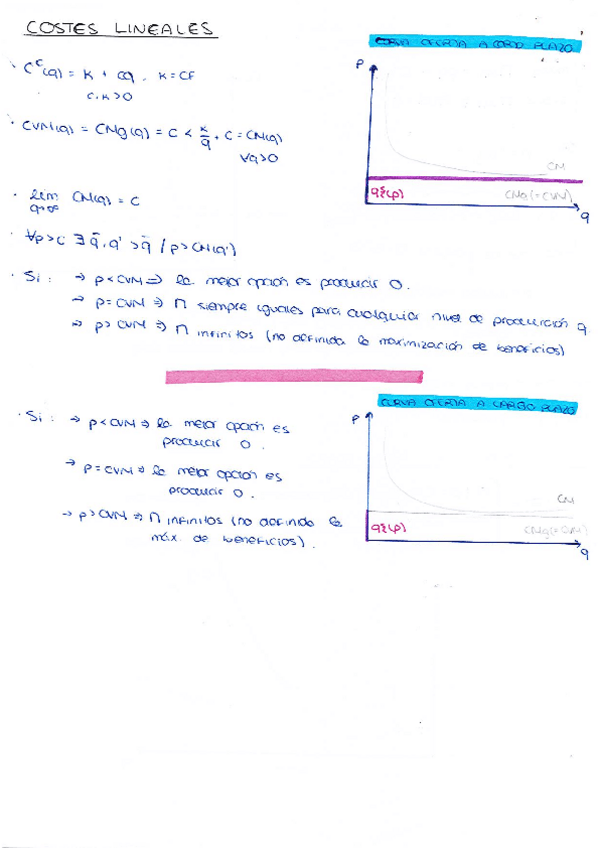 COSTES LINEALES
CURVA OFERTA A CORTO PLAZO
· Cᶜ(q) = K + cq . K = CF
c, K > 0
· CVM(q) = CMg(q) = C < K/q + C = CM(q)
∀q>0
· lim CM(q) = C
q→∞
· ∀p>c ∃ q̄, q' > q̄ / p > CM(q')
P
CM
q^ε(p)
CMg(=CVM)
q
· Si : → p < CVM ⇒ la mejor opción es producir 0.
→ p = CVM ⇒ Π siempre iguales para cualquier nivel de producción q
→ p > CVM ⇒ Π infinitos (no definida la maximización de beneficios)
CURVA OFERTA A LARGO PLAZO
· Si : → p < CVM ⇒ la mejor opción es
producir 0.
→ p = CVM ⇒ la mejor opción es
producir 0.
→ p > CVM ⇒ Π infinitos (no definida la
máx. de beneficios).
P
CM
q^ε(p)
CMg(=CVM)
q